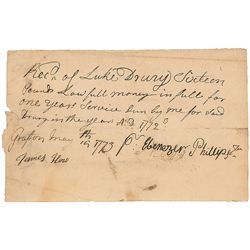 Recd of Luke Drury Sixteen
Pounds Lawfull money in full for
one Years Service Dun by me for sd
Drury in the year AD 1772
Grafton May th 19 1773 pr Ebenezer Phillips
James